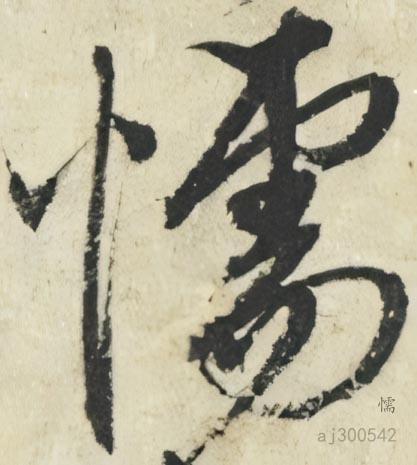 懦
懦
aj300542